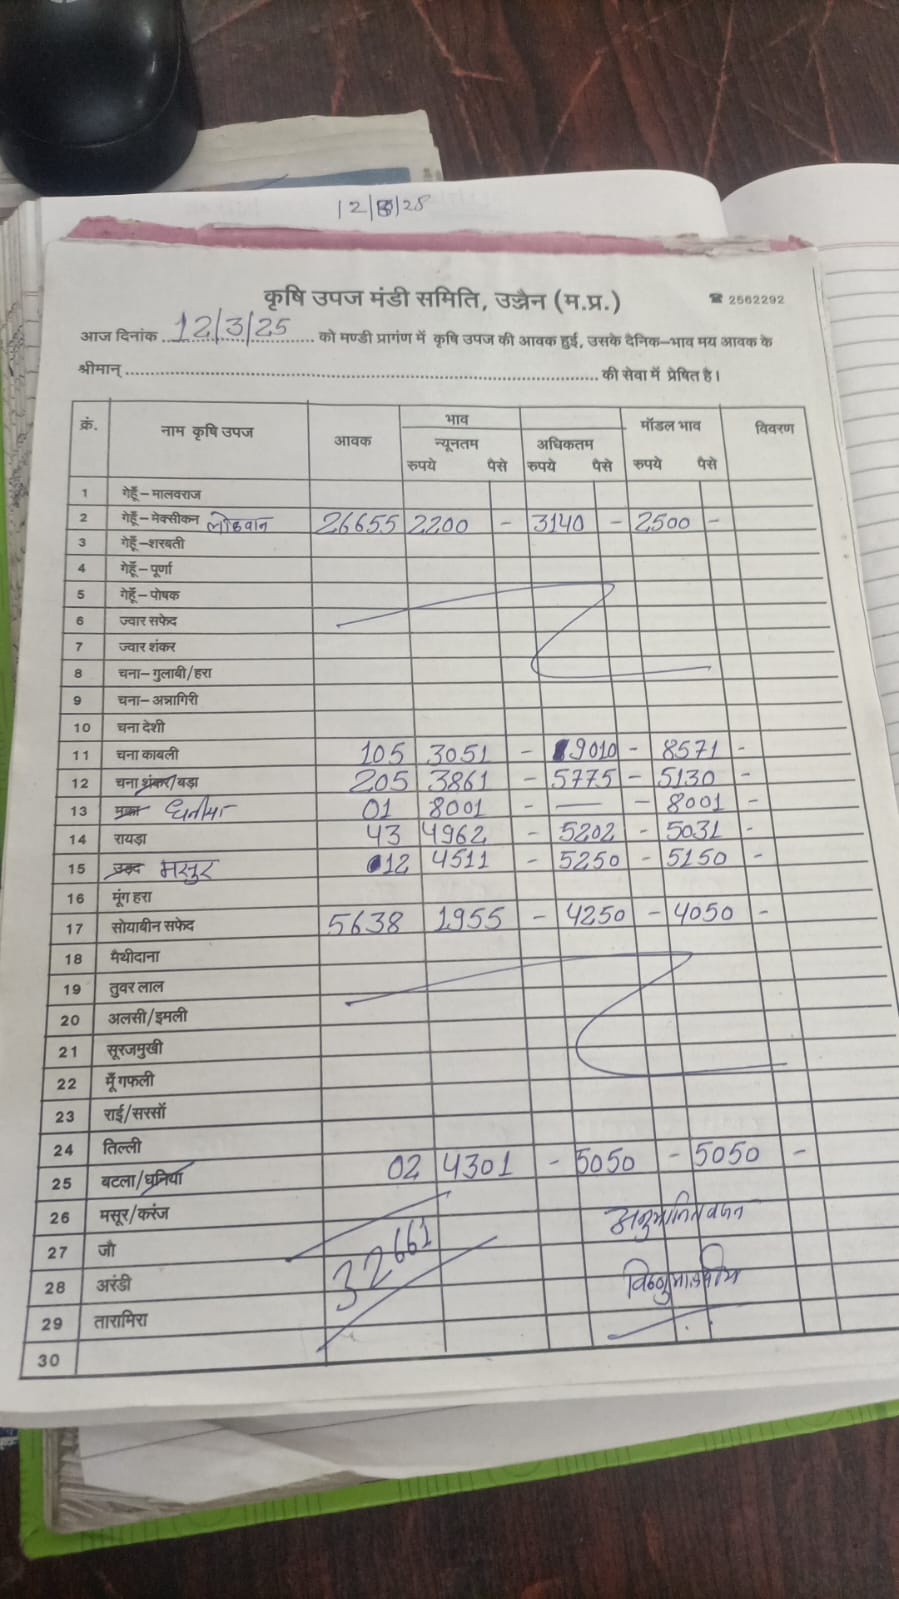 12/3/25
कृषि उपज मंडी समिति, उज्जैन (म.प्र.) ☎ 2562292
आज दिनांक 12/3/25 को मण्डी प्रागंण में कृषि उपज की आवक हुई, उसके दैनिक–भाव मय आवक के
श्रीमान् की सेवा में प्रेषित है।
क्रं. नाम कृषि उपज आवक भाव मॉडल भाव विवरण
न्यूनतम अधिकतम
रुपये पैसे रुपये पैसे रुपये पैसे
1 गेहूँ–मालवराज
2 गेहूँ–मेक्सीकन लोकवान 26655 2200 - 3140 - 2500 -
3 गेहूँ–शरबती
4 गेहूँ–पूर्णा
5 गेहूँ–पोषक
6 ज्वार सफेद
7 ज्वार शंकर
8 चना–गुलाबी/हरा
9 चना–अन्नागिरी
10 चना देशी
11 चना काबली 105 3051 - 9010 - 8571 -
12 चना शंकर/बड़ा 205 3861 - 5775 - 5130 -
13 मक्का धनीया 01 8001 - — - 8001 -
14 रायड़ा 43 4962 - 5202 - 5031 -
15 उड़द मसुर 12 4511 - 5250 - 5150 -
16 मूंग हरा
17 सोयाबीन सफेद 5638 1955 - 4250 - 4050 -
18 मैथीदाना
19 तुवर लाल
20 अलसी/इमली
21 सूरजमुखी
22 मूँगफली
23 राई/सरसों
24 तिल्ली
25 बटला/धनिया 02 4301 - 5050 - 5050 -
26 मसूर/करंज
27 जौ
28 अरंडी
29 तारामिरा
30
32661
अनुमानित वजन